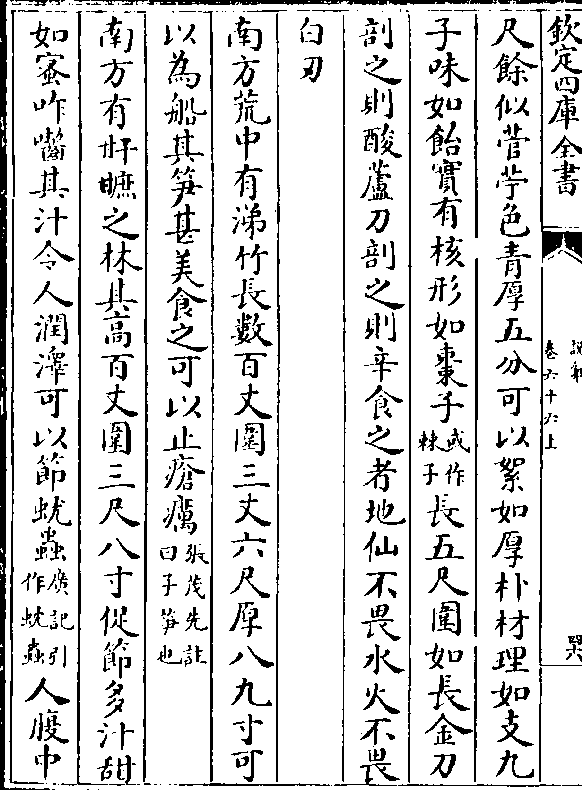 欽定四庫全書
說郛
卷六十六上
尺餘似菅苧色青厚五分可以絮如厚朴材理如支九
子味如飴實有核形如棗子或作棘子長五尺圍如長金刀
剖之則酸蘆刀剖之則辛食之者地仙不畏水火不畏
白刃
南方荒中有涕竹長數百丈圍三丈六尺厚八九寸可
以為船其笋甚美食之可以止瘡癘張茂先註曰子笋也
南方有㽏𣞙之林其高百丈圍三尺八寸促節多汁甜
如蜜咋嚙其汁令人潤澤可以節蚘蟲廣記引作蚘蟲人腹中